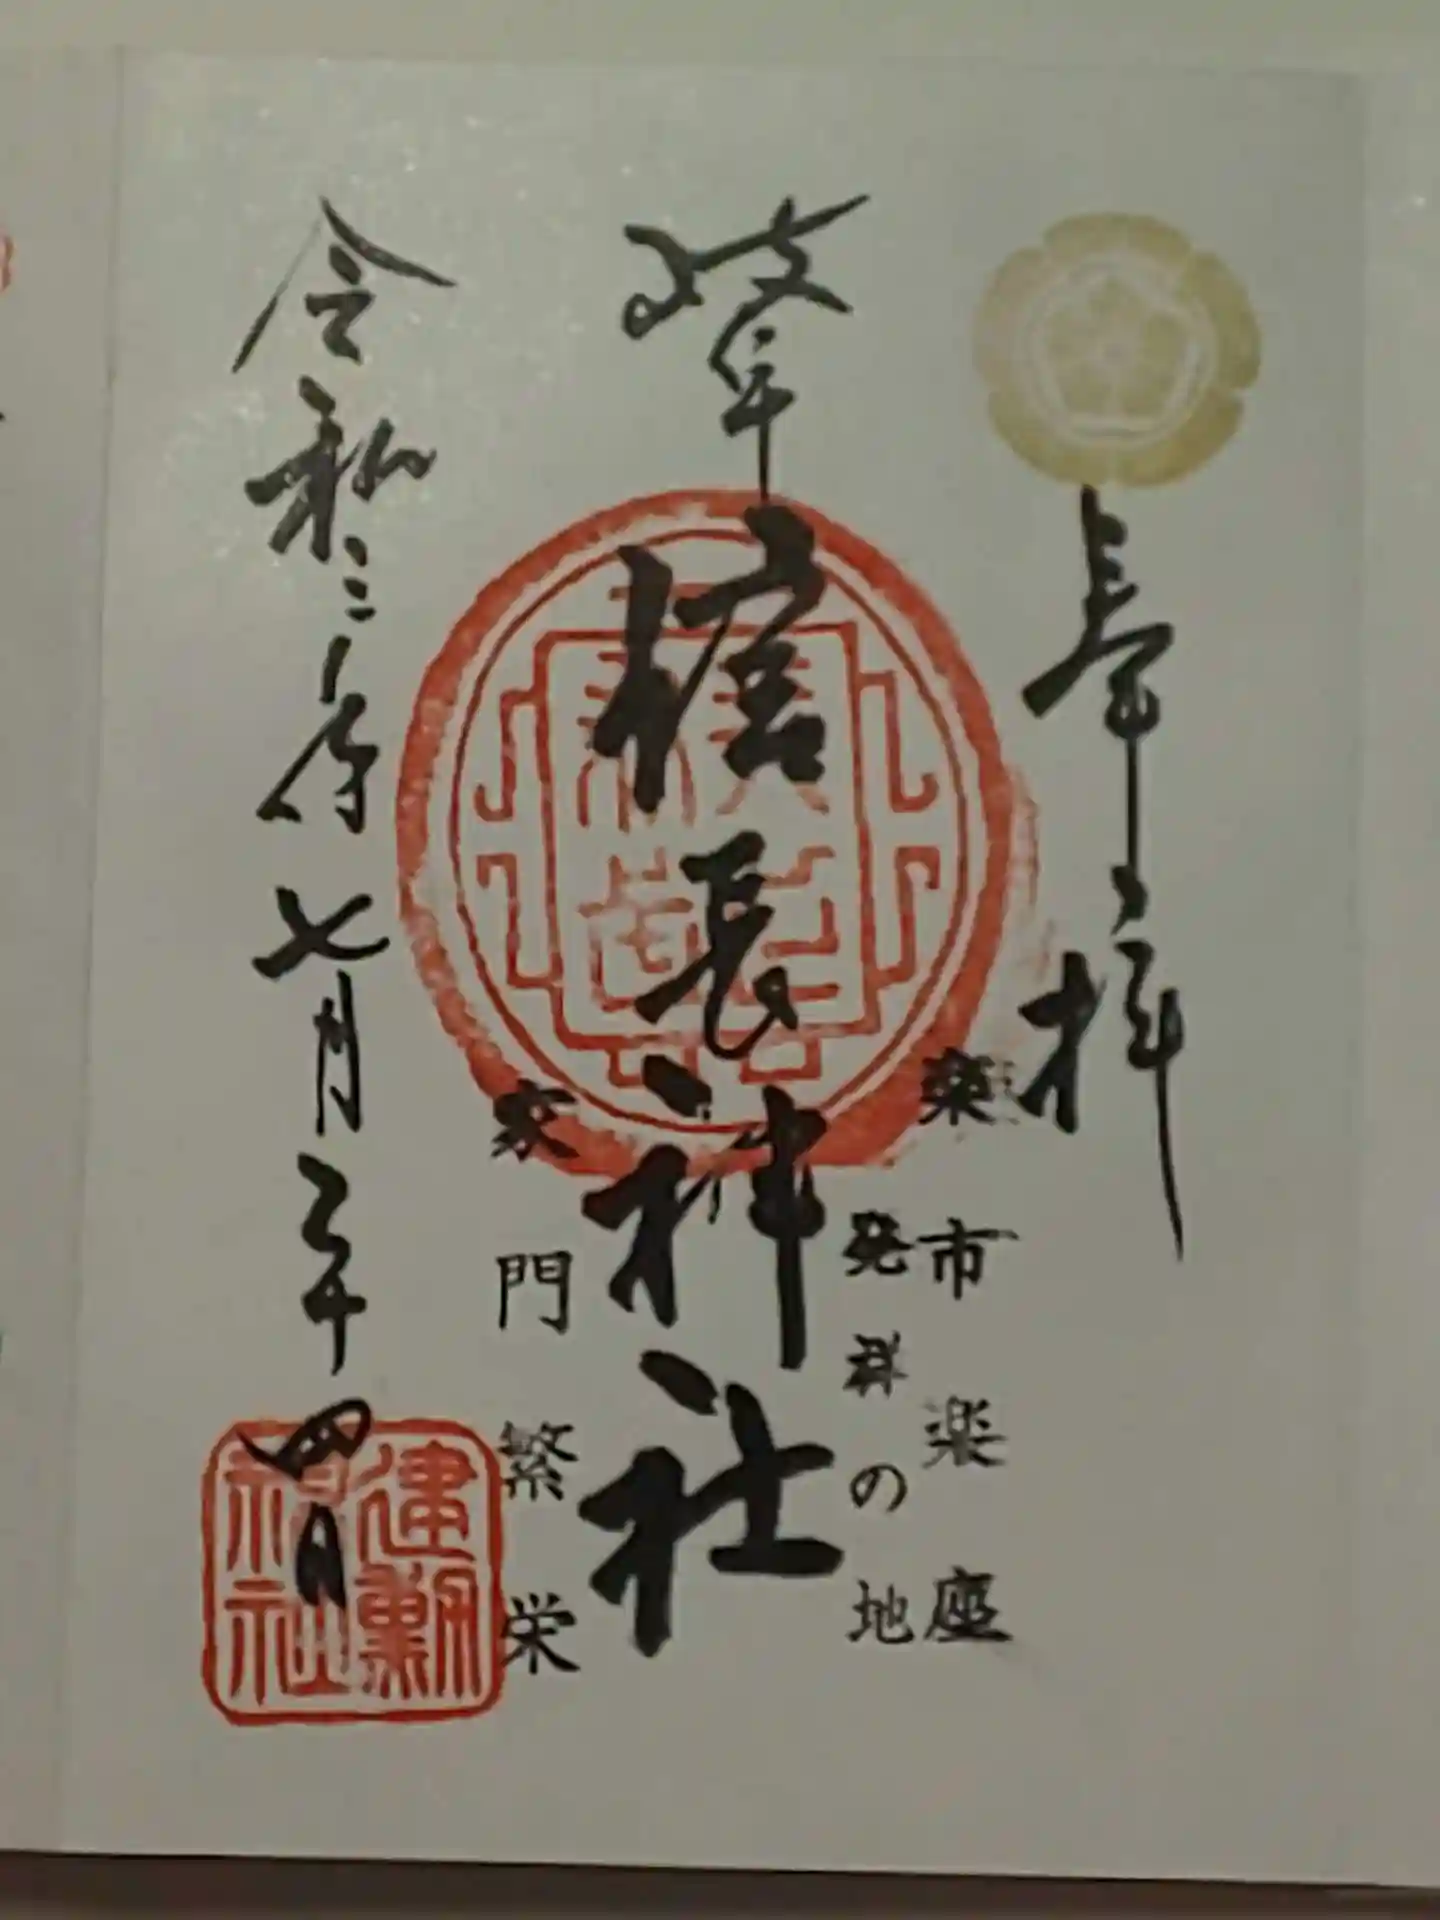 奉拝
楽市楽座
発祥の地
岐阜
信長神社
家門繁栄
令和三年七月二十四日
建勲
神社